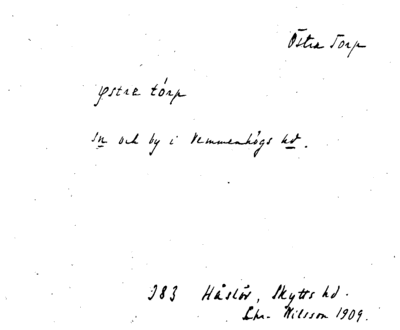 Östra Torp
østre tórp
sn och by i Vemmenhögs hd.
383 Håslöv, Skytts hd.
Chr. Nilsson 1909.